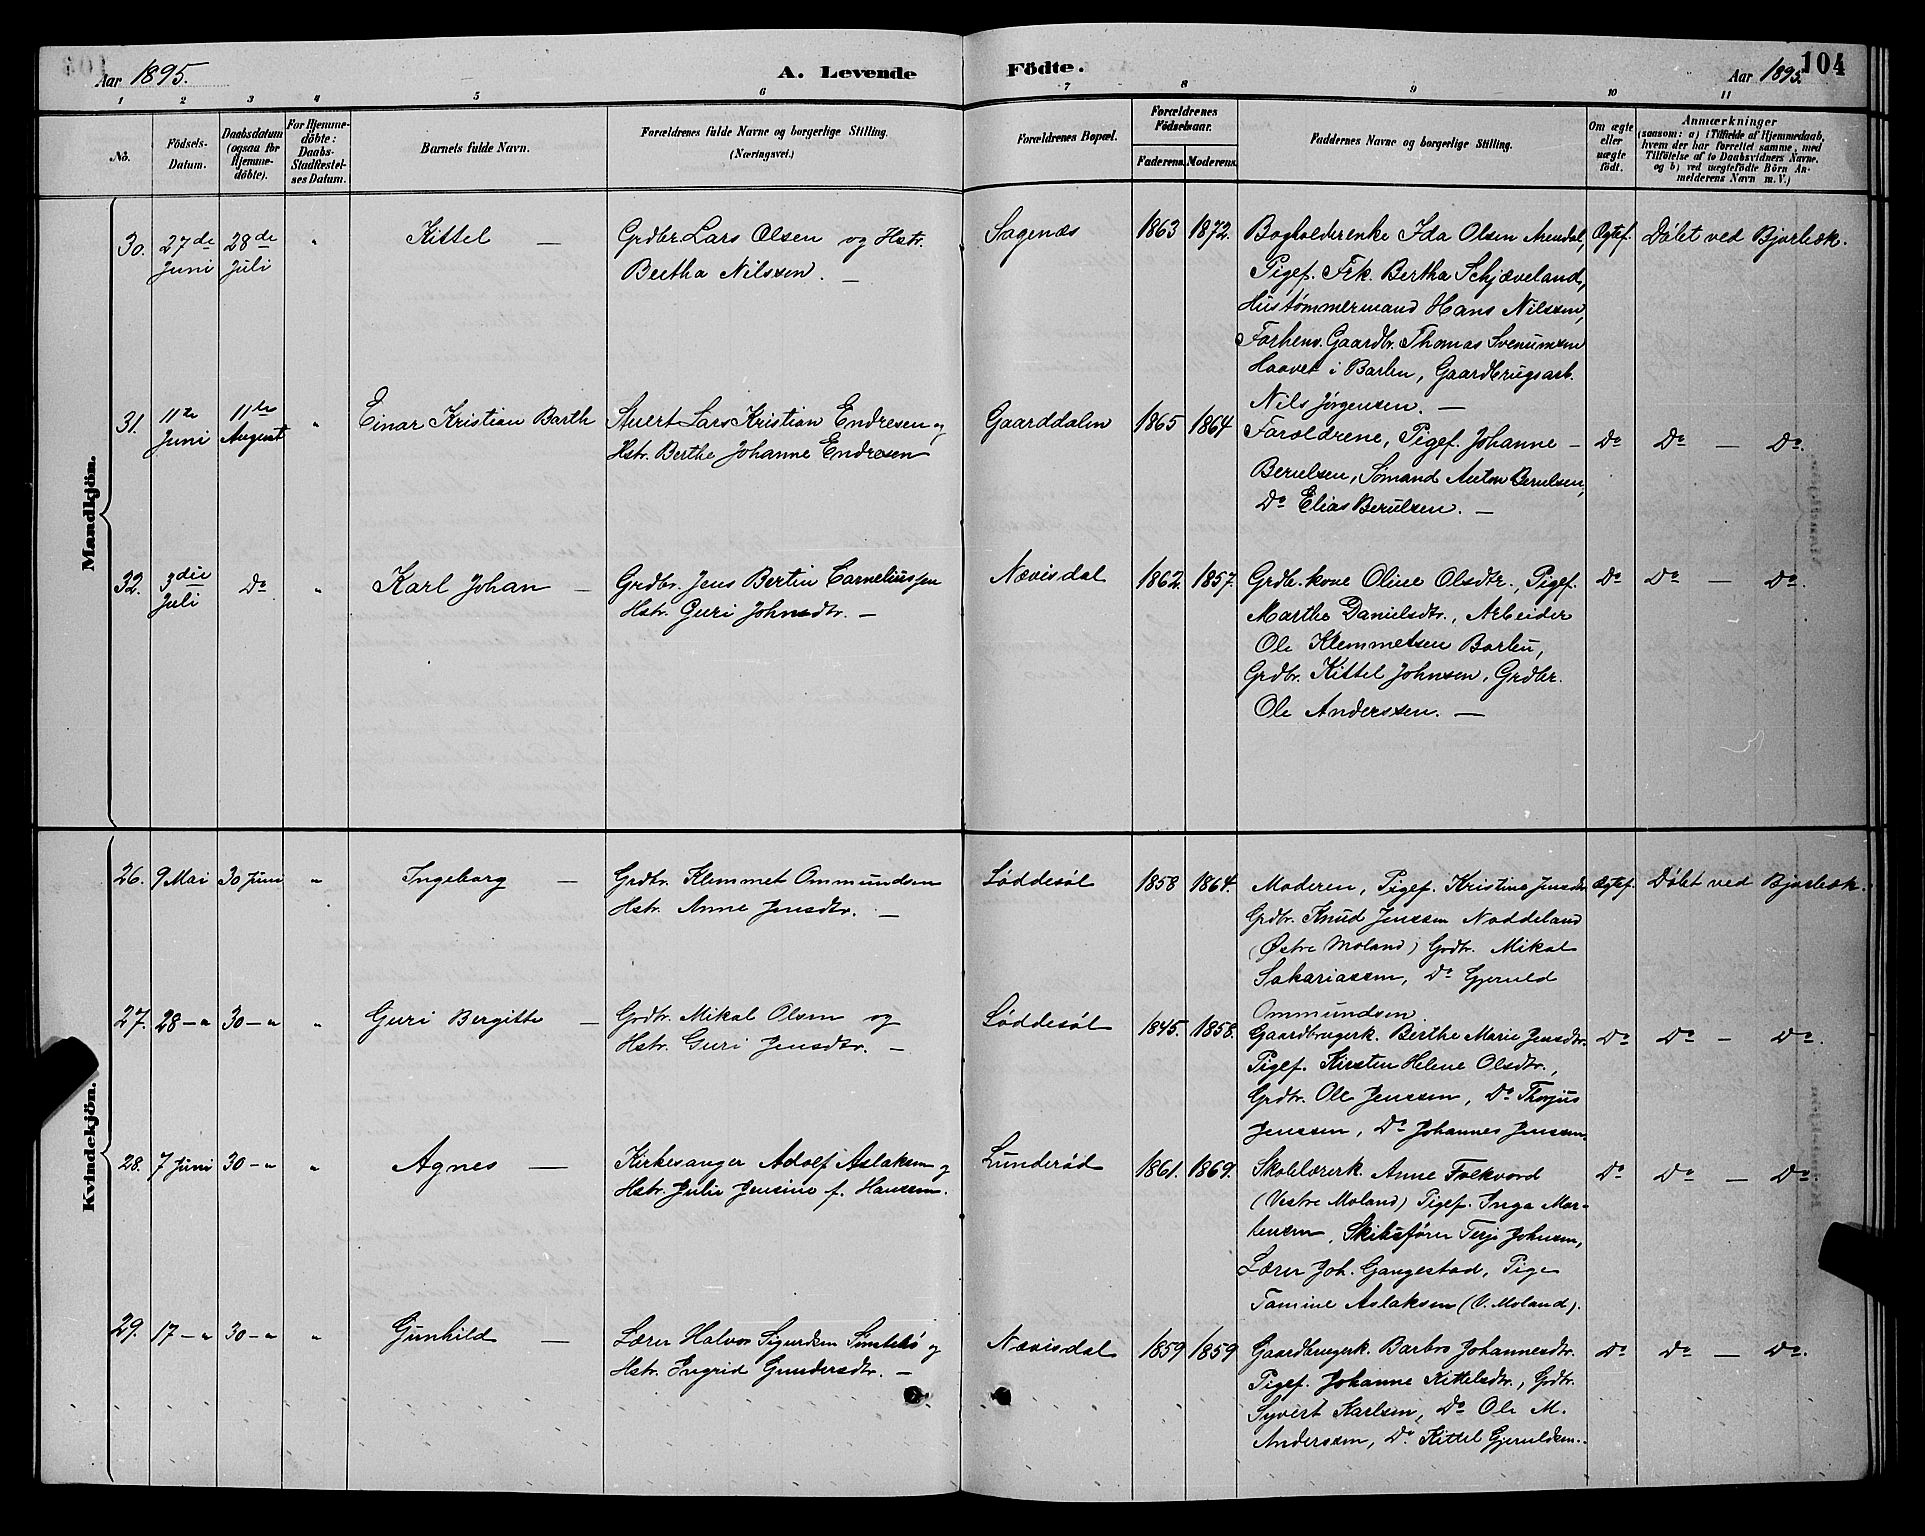 Aar 1895.
A. Levende
Födte.
Aar 1895.
104
1 2 3 4 5 6 7 8 9 10 11
No.
Födsels-
Datum.
Daabsdatum
(ogsaa for
Hjemme-
döbte).
For Hjemme-
döbte:
Daabs-
Stadfæstel-
ses Datum.
Barnets fulde Navn.
Forældrenes fulde Navne og borgerlige Stilling.
(Næringsvei.)
Forældrenes Bopæl.
Forældrenes
Födselsaar.
Faderens. Moderens.
Faddernes Navne og borgerlige Stilling.
Om ægte
eller
uægte
födt.
Anmærkninger
(saasom: a) i Tilfælde af Hjemmedaab,
hvem der har forrettet samme, med
Tilföielse af to Daabsvidners Navne,
og b) ved uægtefödte Börn An-
melderens Navn m. V.)
Mandkjön.
30. 27de Juni 28de Juli " Kittel —
Grdbr. Lars Olsen og Hstr.
Bertha Nilssen. —
Sagenæs 1863 1872.
Bogholderenke Ida Olsen Arendal,
Pigef. Frk. Bertha Schjæveland,
Hustømmermand Hans Nilssen,
Forhenv. Gaardbr. Thomas Svenumsen
Haavet i Barbu, Gaardbrugsarb.
Nils Jørgensen. —
Ægtef. Døbt ved Bjorbæk.
31. 11te Juni 11te August " Einar Kristian Barth
Stuert Lars Kristian Endresen og
Hstr. Berthe Johanne Endresen
Gaarddalen 1865 1864
Forældrene, Pigef. Johanne —
Berulsen, Sømand Anton Berulsen,
Do Elias Berulsen. —
Do Do — Do.
32. 3die Juli Do " Karl Johan —
Grdbr. Jens Bertin Corneliussen
Hstr. Guri Johnsdtr. —
Nævisdal 1862. 1857.
Grdb. kone Oline Olsdtr., Pigef.
Marthe Danielsdtr., Arbeider
Ole Klemmetsen Barbu,
Grdbr. Kittel Johnsen, Grdbr.
Ole Anderssen. —
Do Do — Do.
Kvindekjön.
26. 9 Mai 30 Juni " Ingeborg —
Grdbr. Klemmet Ommundsen
Hstr. Anne Jensdtr. —
Løddesøl 1858 1864.
Moderen, Pigef. Kristine Jensdtr.
Grdbr. Knud Jenssen Noddeland
(Østre Moland) Grdbr. Mikal
Sakariassen, Do Gjeruld
Ommundsen.
Ægtef. Døbt ved Bjorbæk.
27. 28 — " 30 — " " Guri Bergitte —
Grdbr. Mikal Olsen og
Hstr. Guri Jensdtr. —
Løddesøl 1845. 1858.
Gaardbrugerk. Berthe Marie Jensdtr.
Pigef. Kirsten Helene Olsdtr.,
Grdbr. Ole Jenssen, Do Thorjus
Jenssen, Do Johannes Jenssen.
Do Do — Do.
28. 7 Juni 30 — " " Agnes —
Kirkesanger Adolf Aslaksen og
Hstr. Julie Jensine f. Hanssen.
Lunderød 1861. 1869.
Skolelærerk. Anne Folkvord
(Vestre Moland) Pigef. Inga Mor-
tensen, Skibsfører Terje Johnsen,
Lærer Joh. Gangestad, Pige
Tamine Aslaksen (V. Moland).
Do Do — Do
29. 17 — " 30 — " " Gunhild —
Lærer Halvor Sigurdsen og
Hstr. Ingrid Gundersdtr. —
Nævisdal 1859 1859
Gaardbrugerk. Barbro Johannesdtr.
Pigef. Johanne Kittelsdtr., Grdbr.
Syvert Karlsen, Do Ole M.
Anderssen, Do. Kittel Gjeruldsen.
Do Do — Do.